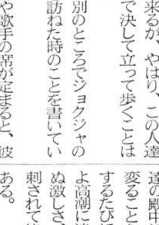 来るが、やはり、この人達
で決して立って歩くことは
別のところでジョクジャの
訪ねた時のことを書いてい
や歌手の席が定まると、彼
達の殿中
変ること
するたび
よ高潮に
ぬ激しさ、
刺されて
ある。